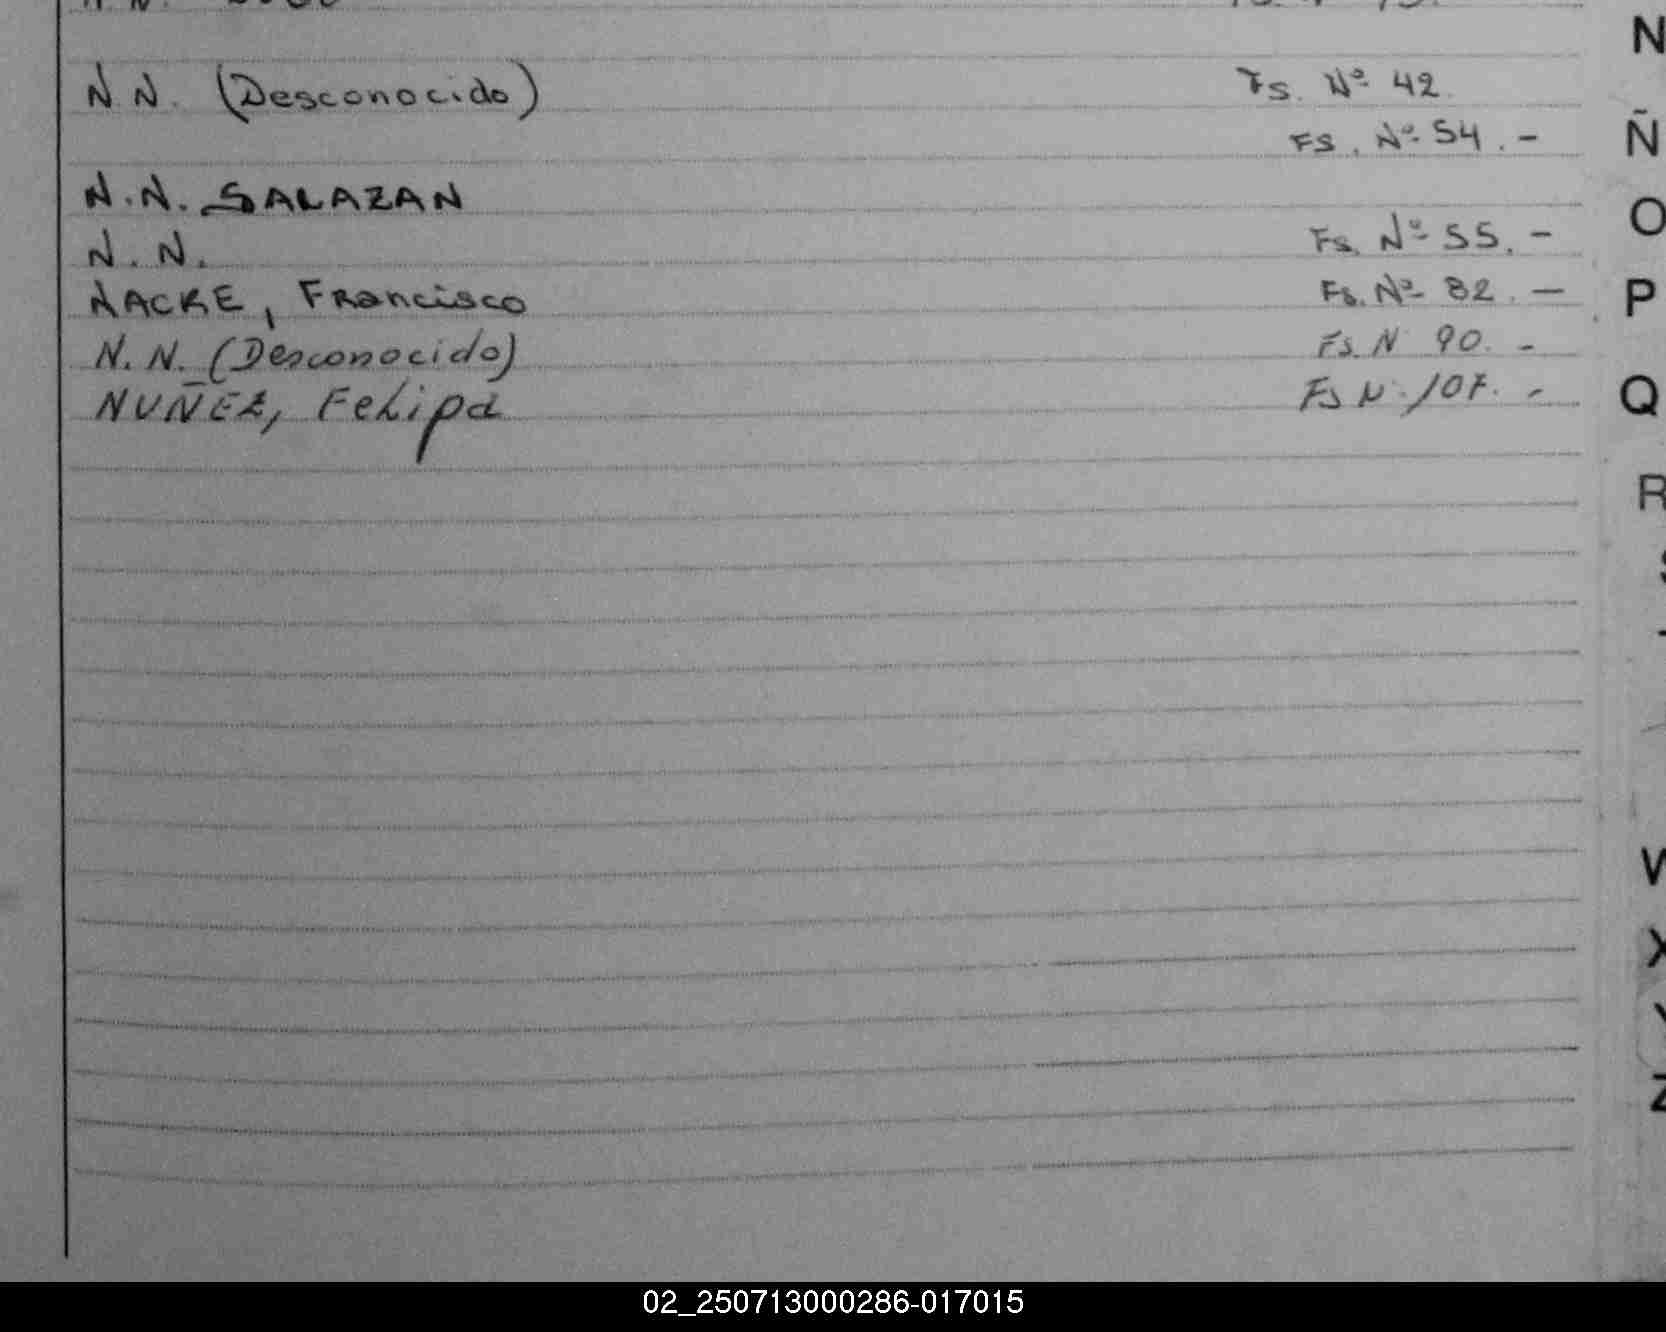 N N. (Desconocido) Fs. Nº 42.
Fs. Nº 54. -
N.N. SALAZAN
N. N. Fs. Nº 55. -
NACKE, Francisco Fs. Nº 82. -
N.N. (Desconocido) Fs. N 90. -
NUÑEZ, Felipa Fs N. 107. -
N
Ñ
O
P
Q
R
S
W
X
Y
Z
02_250713000286-017015